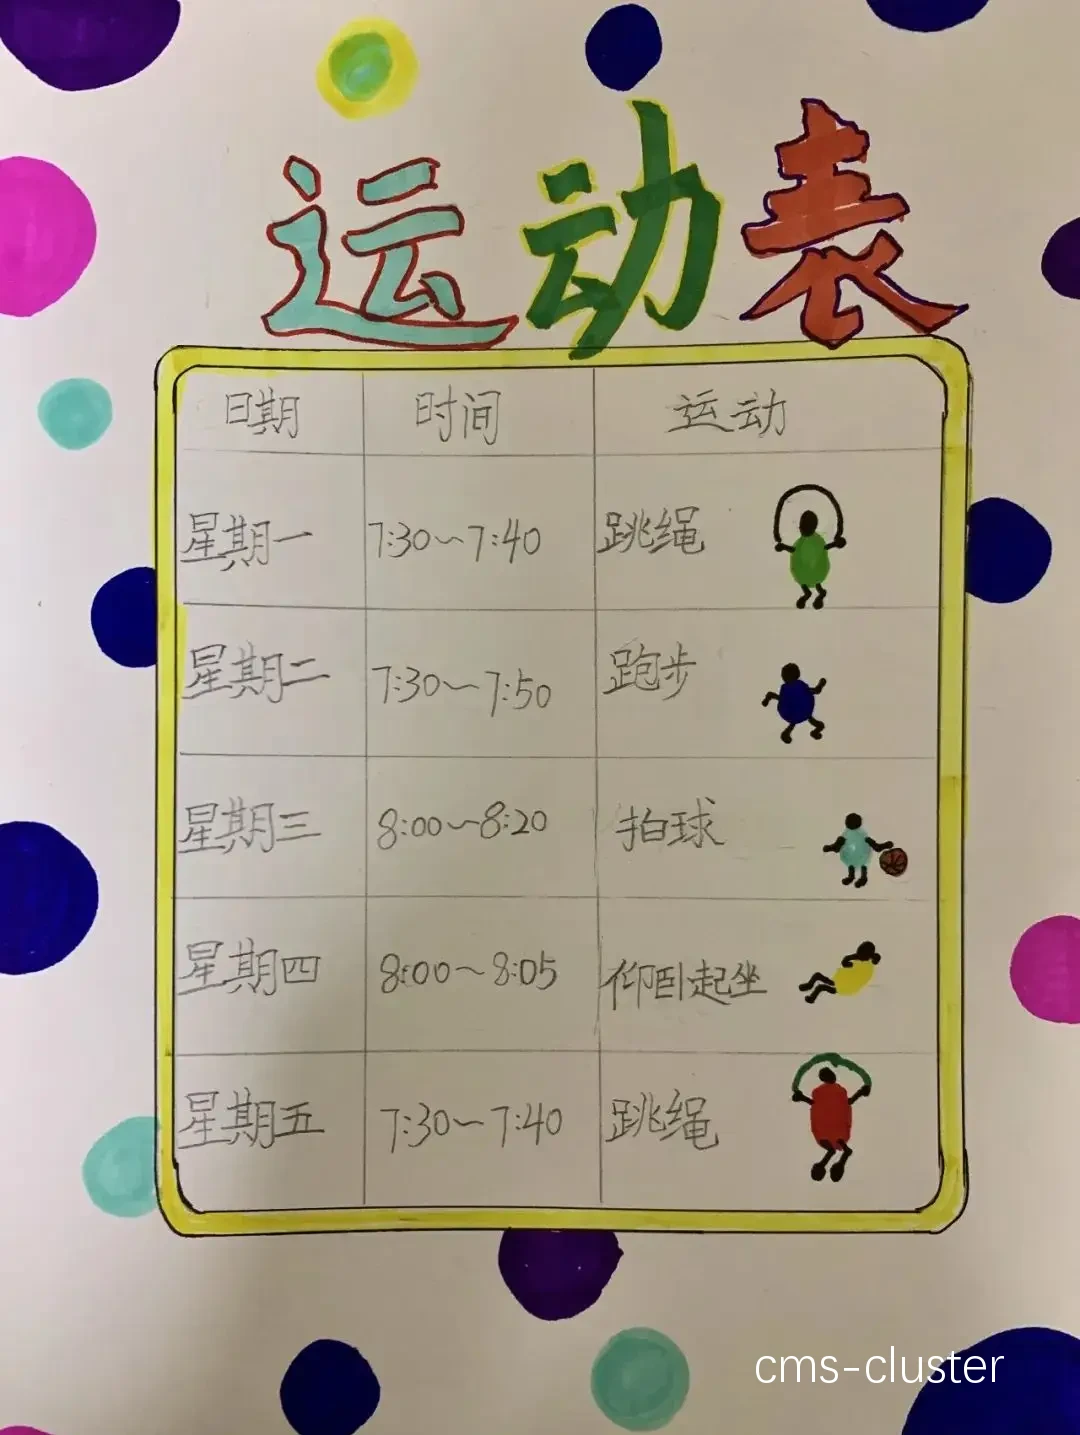 运动表
日期 时间 运动
星期一 7:30~7:40 跳绳
星期二 7:30~7:50 跑步
星期三 8:00~8:20 拍球
星期四 8:00~8:05 仰卧起坐
星期五 7:30~7:40 跳绳
cms-cluster